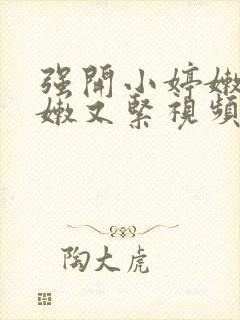 强開小婷嫩
嫩又緊視頻
陶大虎